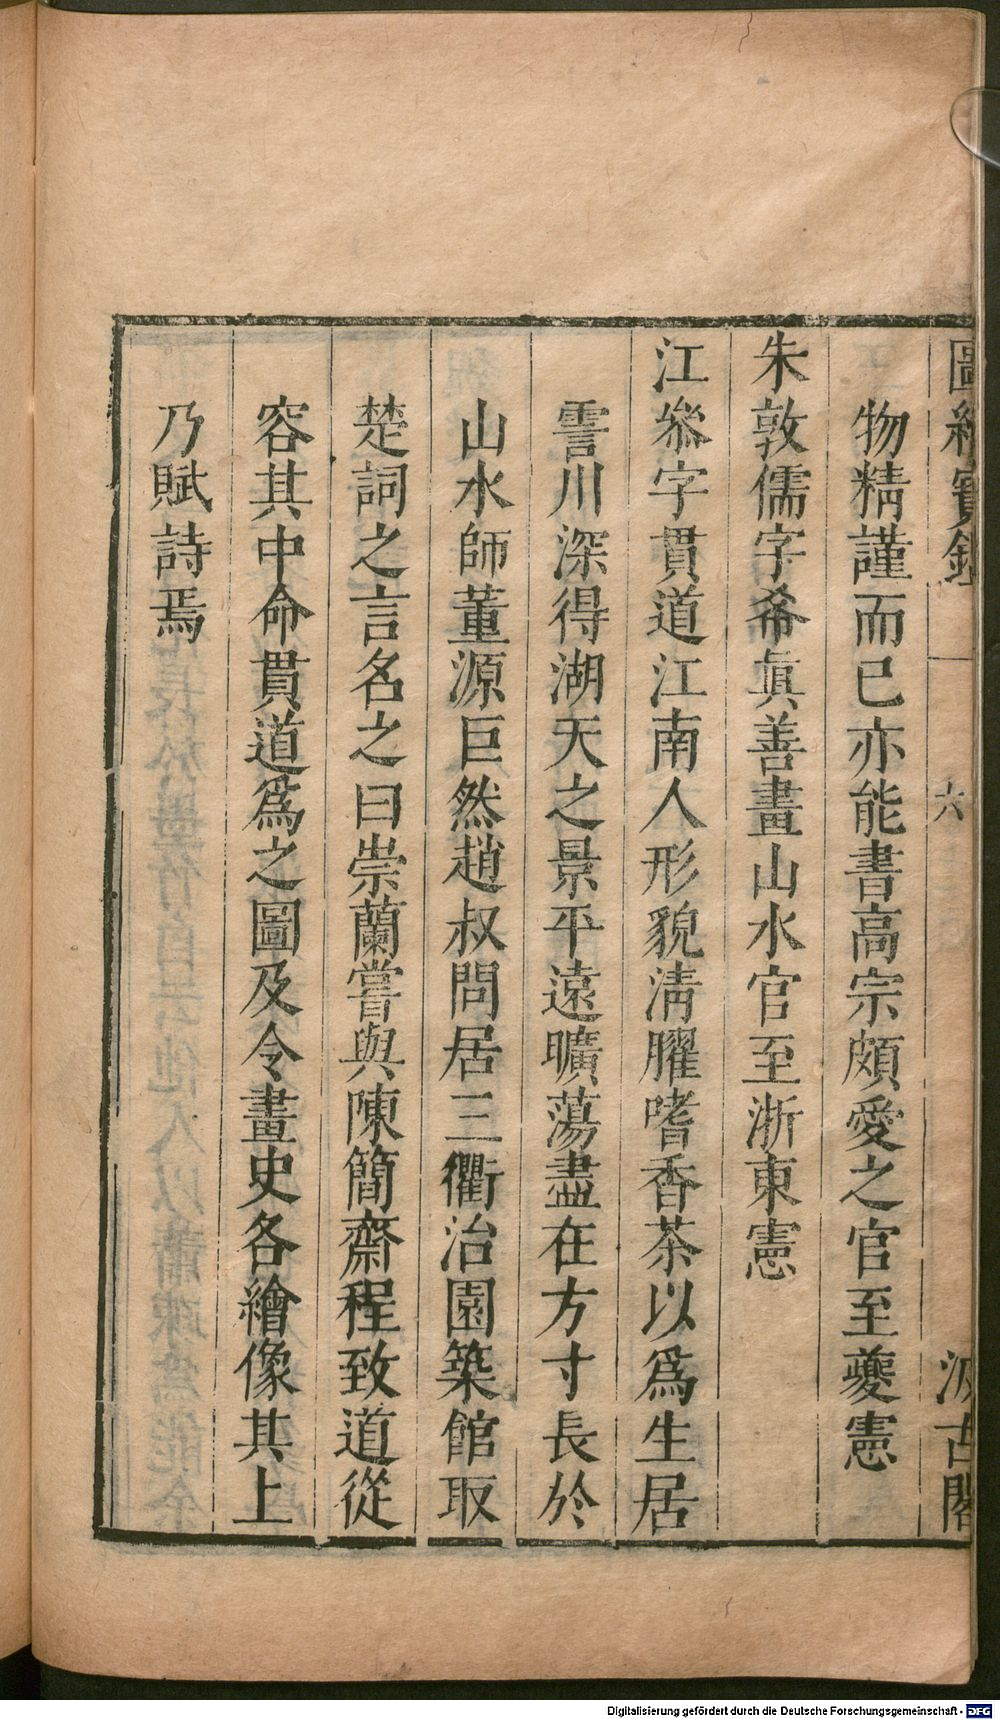 圖繪寶鑑 六 汲古閣
物精謹而已亦能書高宗頗愛之官至夔憲
朱敦儒字希眞善畫山水官至浙東憲
江叅字貫道江南人形貌淸臞嗜香茶以爲生居
霅川深得湖天之景平遠曠蕩盡在方寸長於
山水師董源巨然趙叔問居三衢治園築館取
楚詞之言名之曰崇蘭嘗與陳簡齋程致道從
容其中命貫道爲之圖及令畫史各繪像其上
乃賦詩焉
Digitalisierung gefördert durch die Deutsche Forschungsgemeinschaft - DFG